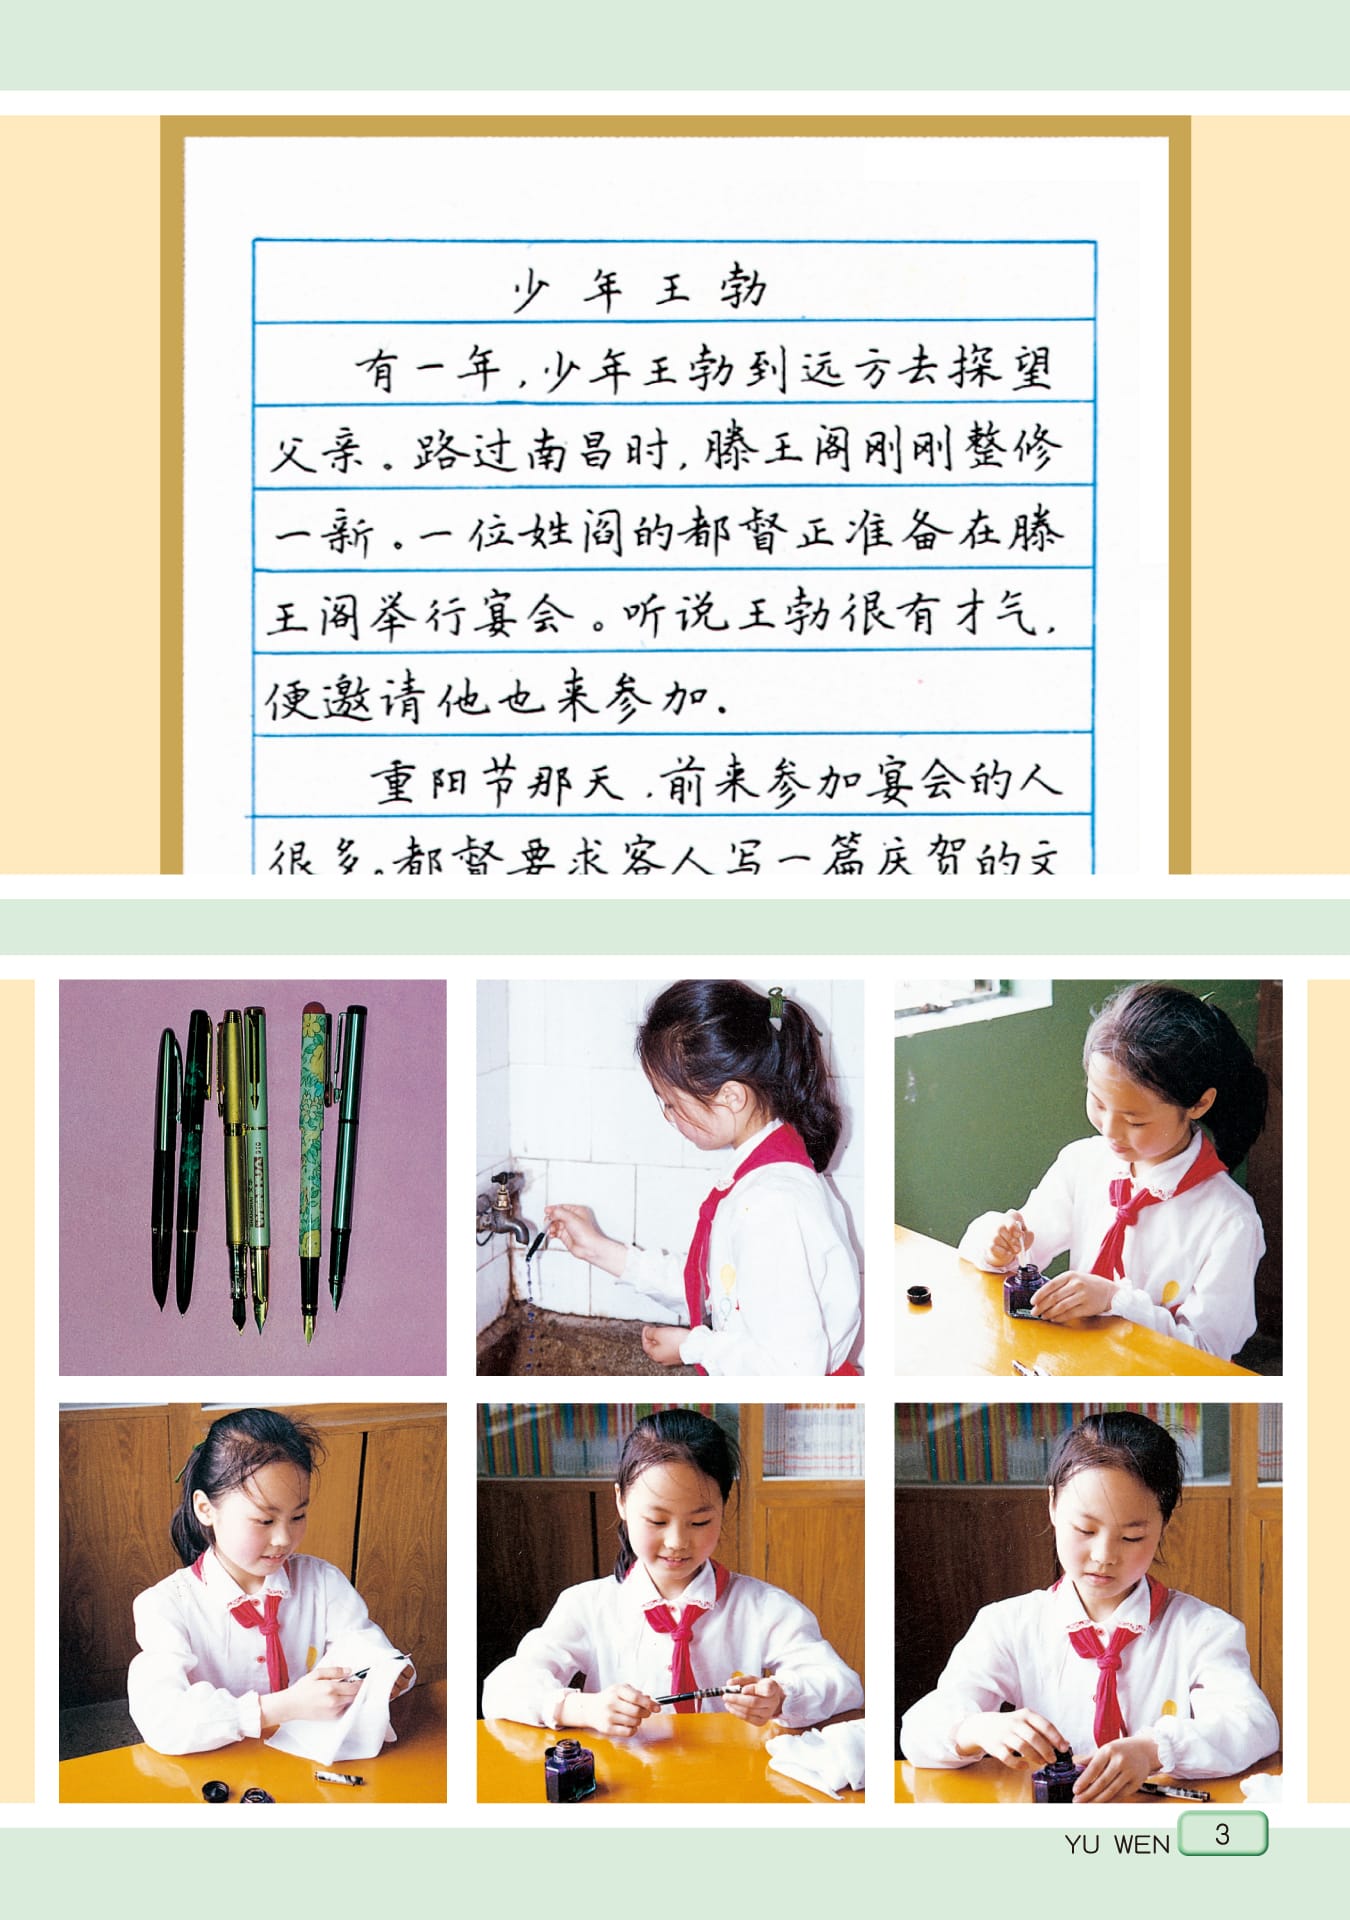 少年王勃
有一年,少年王勃到远方去探望
父亲。路过南昌时,滕王阁刚刚整修
一新。一位姓阎的都督正准备在滕
王阁举行宴会。听说王勃很有才气,
便邀请他也来参加.
重阳节那天,前来参加宴会的人
很多。都督要求客人写一篇庆贺的文
YU WEN 3